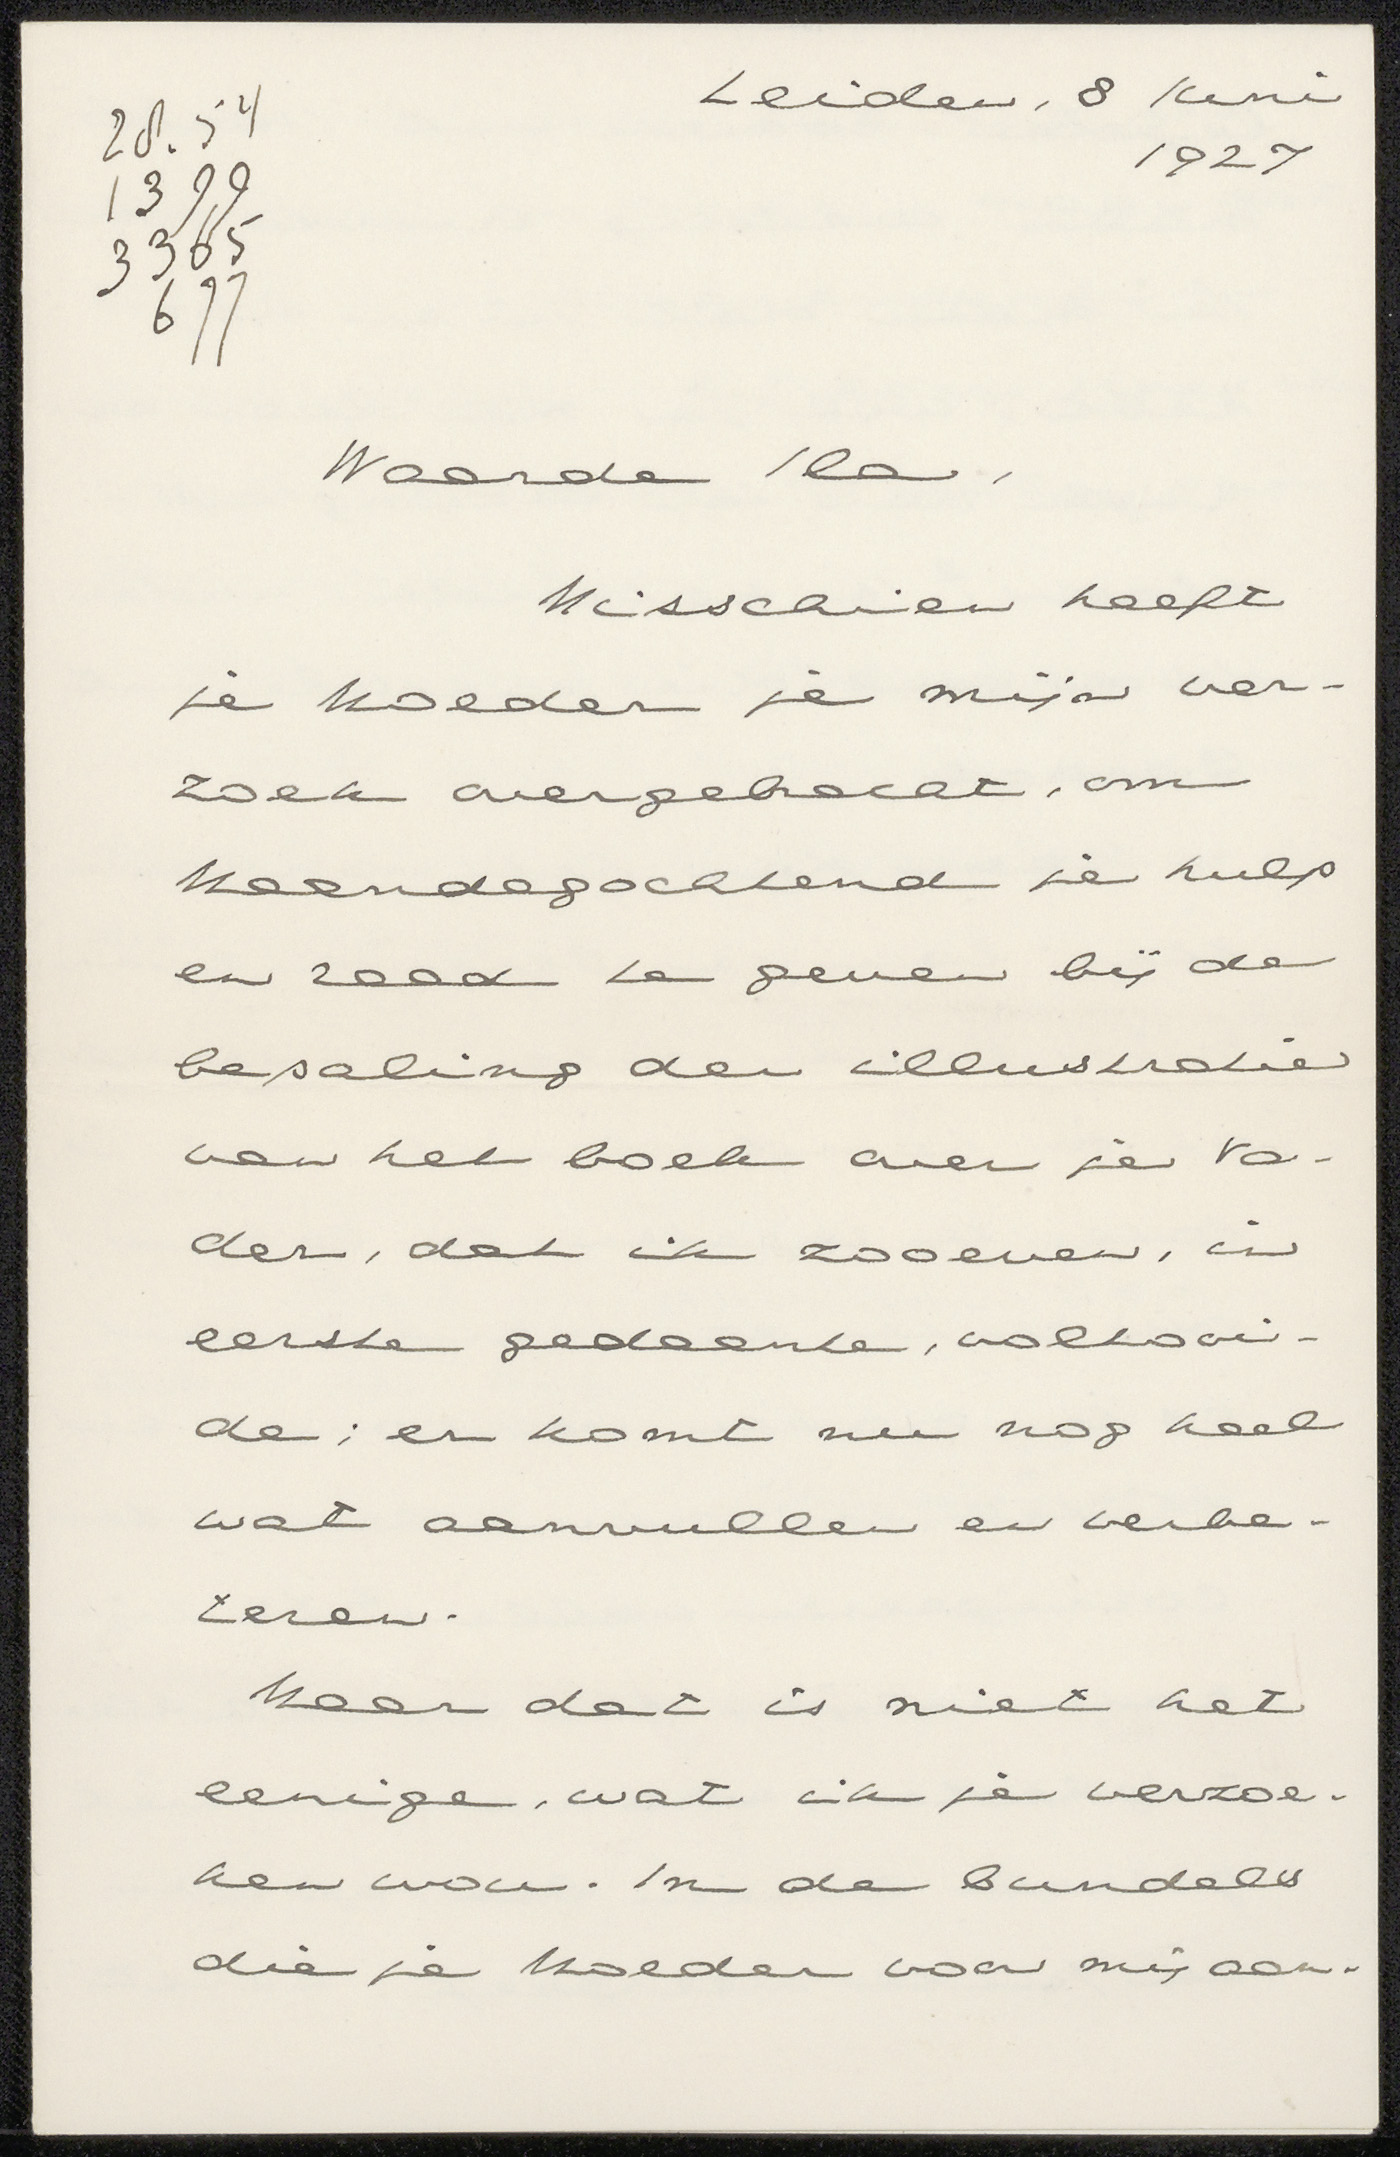 Leiden, 8 Juni
1927
28.54
1399
3365
677
Waarde Ila,
Misschien heeft
je Moeder je mijn ver-
zoek overgebracht, om
Maandagochtend je hulp
en raad te geven bij de
bepaling der illustratie
van het boek over je Va-
der, dat ik zooeven, in
eerste gedaante, voltooi-
de; er komt nu nog heel
wat aanvullen en verbe-
teren.
Maar dat is niet het
eenige, wat ik je verzoe-
ken wou. In de bundels
die je Moeder voor mij aan-